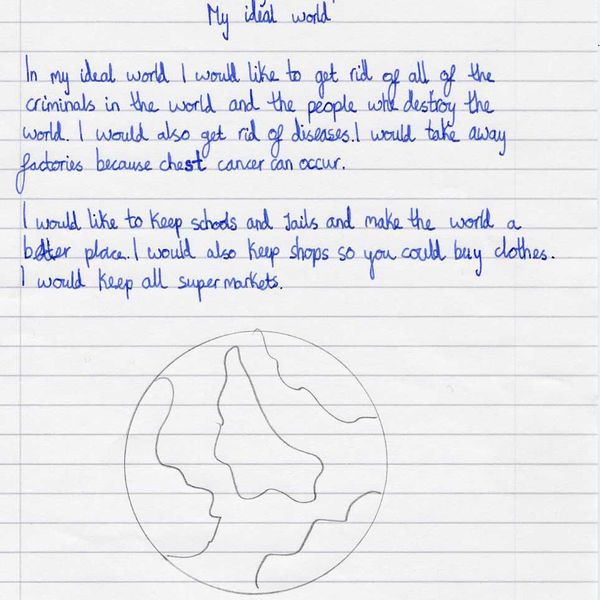 My ideal world
In my ideal world I would like to get rid of all of the
criminals in the world and the people who destroy the
world. I would also get rid of diseases. I would take away
factories because chest cancer can occur.
I would like to keep schools and Jails and make the world a
better place. I would also keep shops so you could buy clothes.
I would keep all supermarkets.